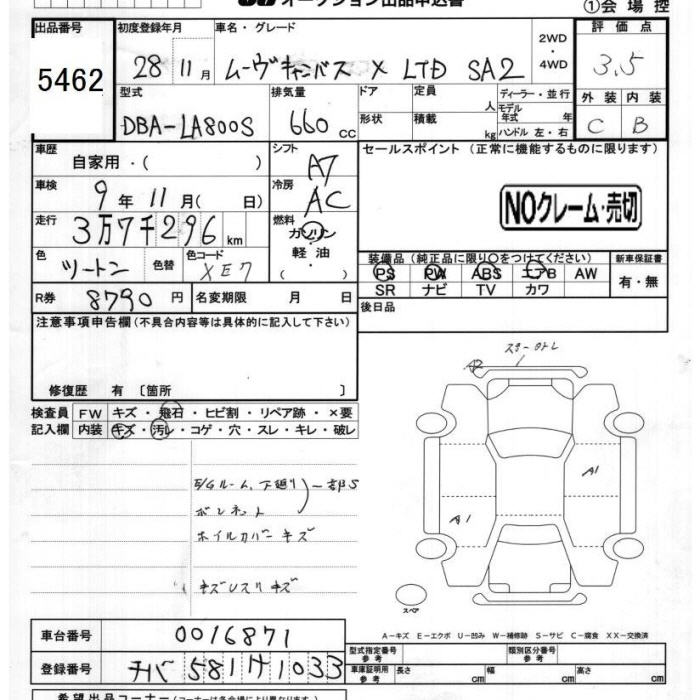 オークション出品申込書
①会場控
出品番号
5462
初度登録年月
28 11月
車名・グレード
ムーヴキャンバス X LTD SA2
2WD
・
4WD
評価点
3.5
型式
DBA-LA800S
排気量
660 cc
ドア
定員
人
ディーラー・並行
モデル
年式 年
形状
積載
kg
ハンドル 左・右
外装 内装
C B
車歴
自家用・( )
シフト
A7
セールスポイント (正常に機能するものに限ります)
車検
9年 11月( 日)
冷房
AC
NOクレーム・売切
走行
3万7千296 km
燃料
ガソリン
軽油
( )
色
ツートン
色替
色コード
XE7
装備品 (純正品に限り○をつけてください)
PS PW ABS エアB AW
SR ナビ TV カワ
新車保証書
有・無
R券 8790円
名変期限 月 日
後日品
注意事項申告欄(不具合内容等は具体的に記入して下さい)
修復歴 有 〔箇所 〕
検査員
記入欄
FW キズ・飛石・ヒビ割・リペア跡・×要
内装 キズ・汚レ・コゲ・穴・スレ・キレ・破レ
E/Gルーム、下廻り 一部S
ボンネット
ホイルカバーキズ
キズUスリキズ
A1
A1
スペア
A-キズ E-エクボ U-凹み W-補修跡 S-サビ C-腐食 XX-交換済
車台番号
0016871
登録番号
型式指定番号
参考
類別区分番号
参考
車庫証明用
参考
長さ cm
幅 cm
高さ cm
希望出品コーナー